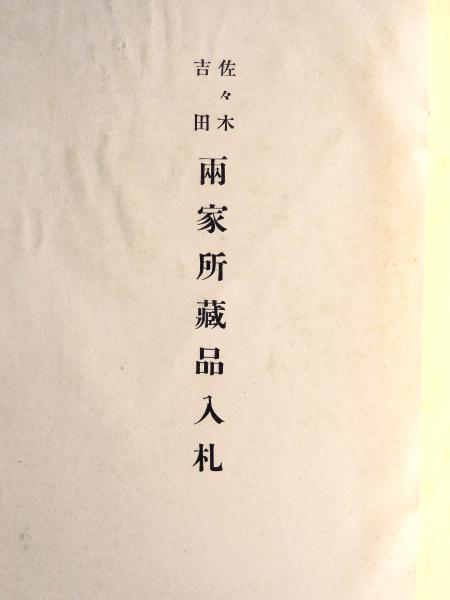 佐々木
吉田
兩家所藏品入札